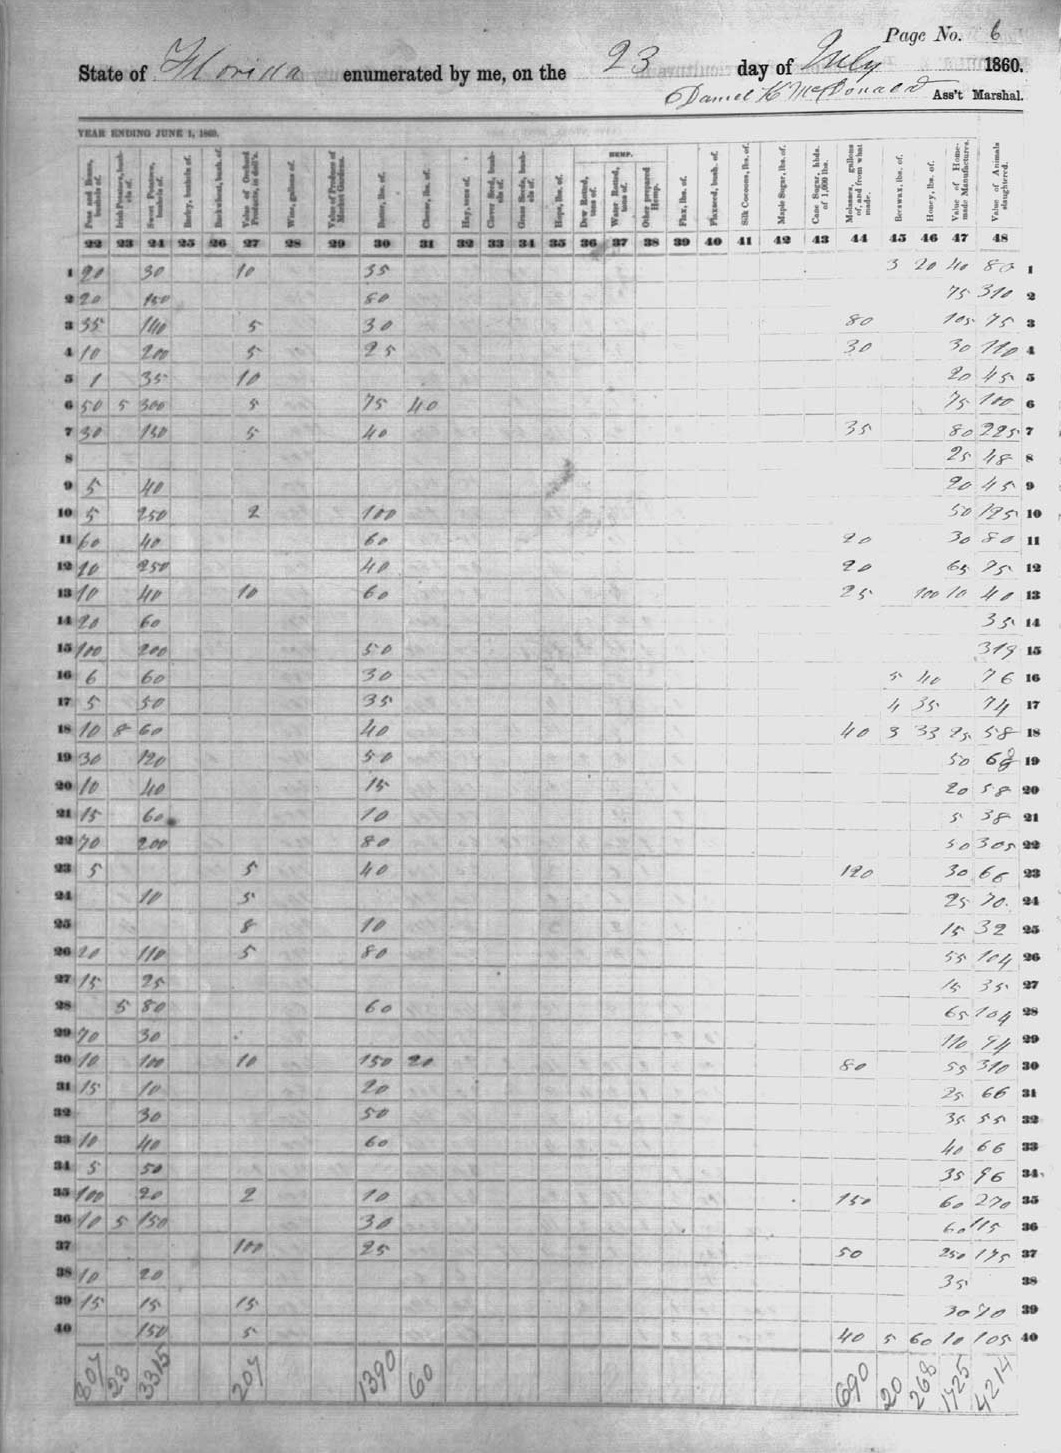 Page No. 6
State of Florida enumerated by me, on the 23 day of July 1860.
Daniel K McDonald Ass't Marshal.
YEAR ENDING JUNE 1, 1860.
HEMP.
Peas and Beans, bushels of. Irish Potatoes, bushels of. Sweet Potatoes, bushels of. Barley, bushels of. Buckwheat, bush. of. Value of Orchard Products, in doll's. Wine, gallons of. Value of Produce of Market Gardens. Butter, lbs. of. Cheese, lbs. of. Hay, tons of. Clover Seed, bushels of. Grass Seeds, bushels of. Hops, lbs. of. Dew Rotted, tons of. Water Rotted, tons of. Other prepared Hemp. Flax, lbs. of. Flaxseed, bush. of. Silk Cocoons, lbs. of. Maple Sugar, lbs. of. Cane Sugar, hhds. of 1,000 lbs. Molasses, gallons of, and from what made. Beeswax, lbs. of. Honey, lbs. of. Value of Home-made Manufactures. Value of Animals slaughtered.
22 23 24 25 26 27 28 29 30 31 32 33 34 35 36 37 38 39 40 41 42 43 44 45 46 47 48
1 20 30 10 35 3 20 40 80 1
2 20 150 80 75 310 2
3 35 140 5 30 80 105 75 3
4 10 200 5 25 30 30 110 4
5 1 35 10 20 45 5
6 50 5 300 5 75 40 75 100 6
7 30 150 5 40 35 80 225 7
8 25 48 8
9 5 40 20 45 9
10 5 250 2 100 50 125 10
11 60 40 60 20 30 80 11
12 10 250 40 20 65 75 12
13 10 40 10 60 25 100 10 40 13
14 20 60 35 14
15 100 200 50 319 15
16 6 60 30 5 40 76 16
17 5 50 35 4 35 74 17
18 10 8 60 40 40 3 33 25 58 18
19 30 120 50 50 19
20 10 40 15 20 58 20
21 15 60 10 5 38 21
22 70 200 80 50 305 22
23 5 5 40 120 30 66 23
24 10 5 25 70 24
25 8 10 15 32 25
26 20 110 5 80 55 104 26
27 15 25 15 35 27
28 5 80 60 65 104 28
29 70 30 110 94 29
30 10 100 10 150 20 80 55 310 30
31 15 10 20 25 66 31
32 30 50 35 55 32
33 10 40 60 40 66 33
34 5 50 35 96 34
35 100 20 2 10 150 60 270 35
36 10 5 150 30 60 115 36
37 100 25 50 250 175 37
38 10 20 35 38
39 15 15 15 30 70 39
40 150 5 40 5 60 10 105 40
807 23 3315 207 1390 60 690 20 268 1725 4214